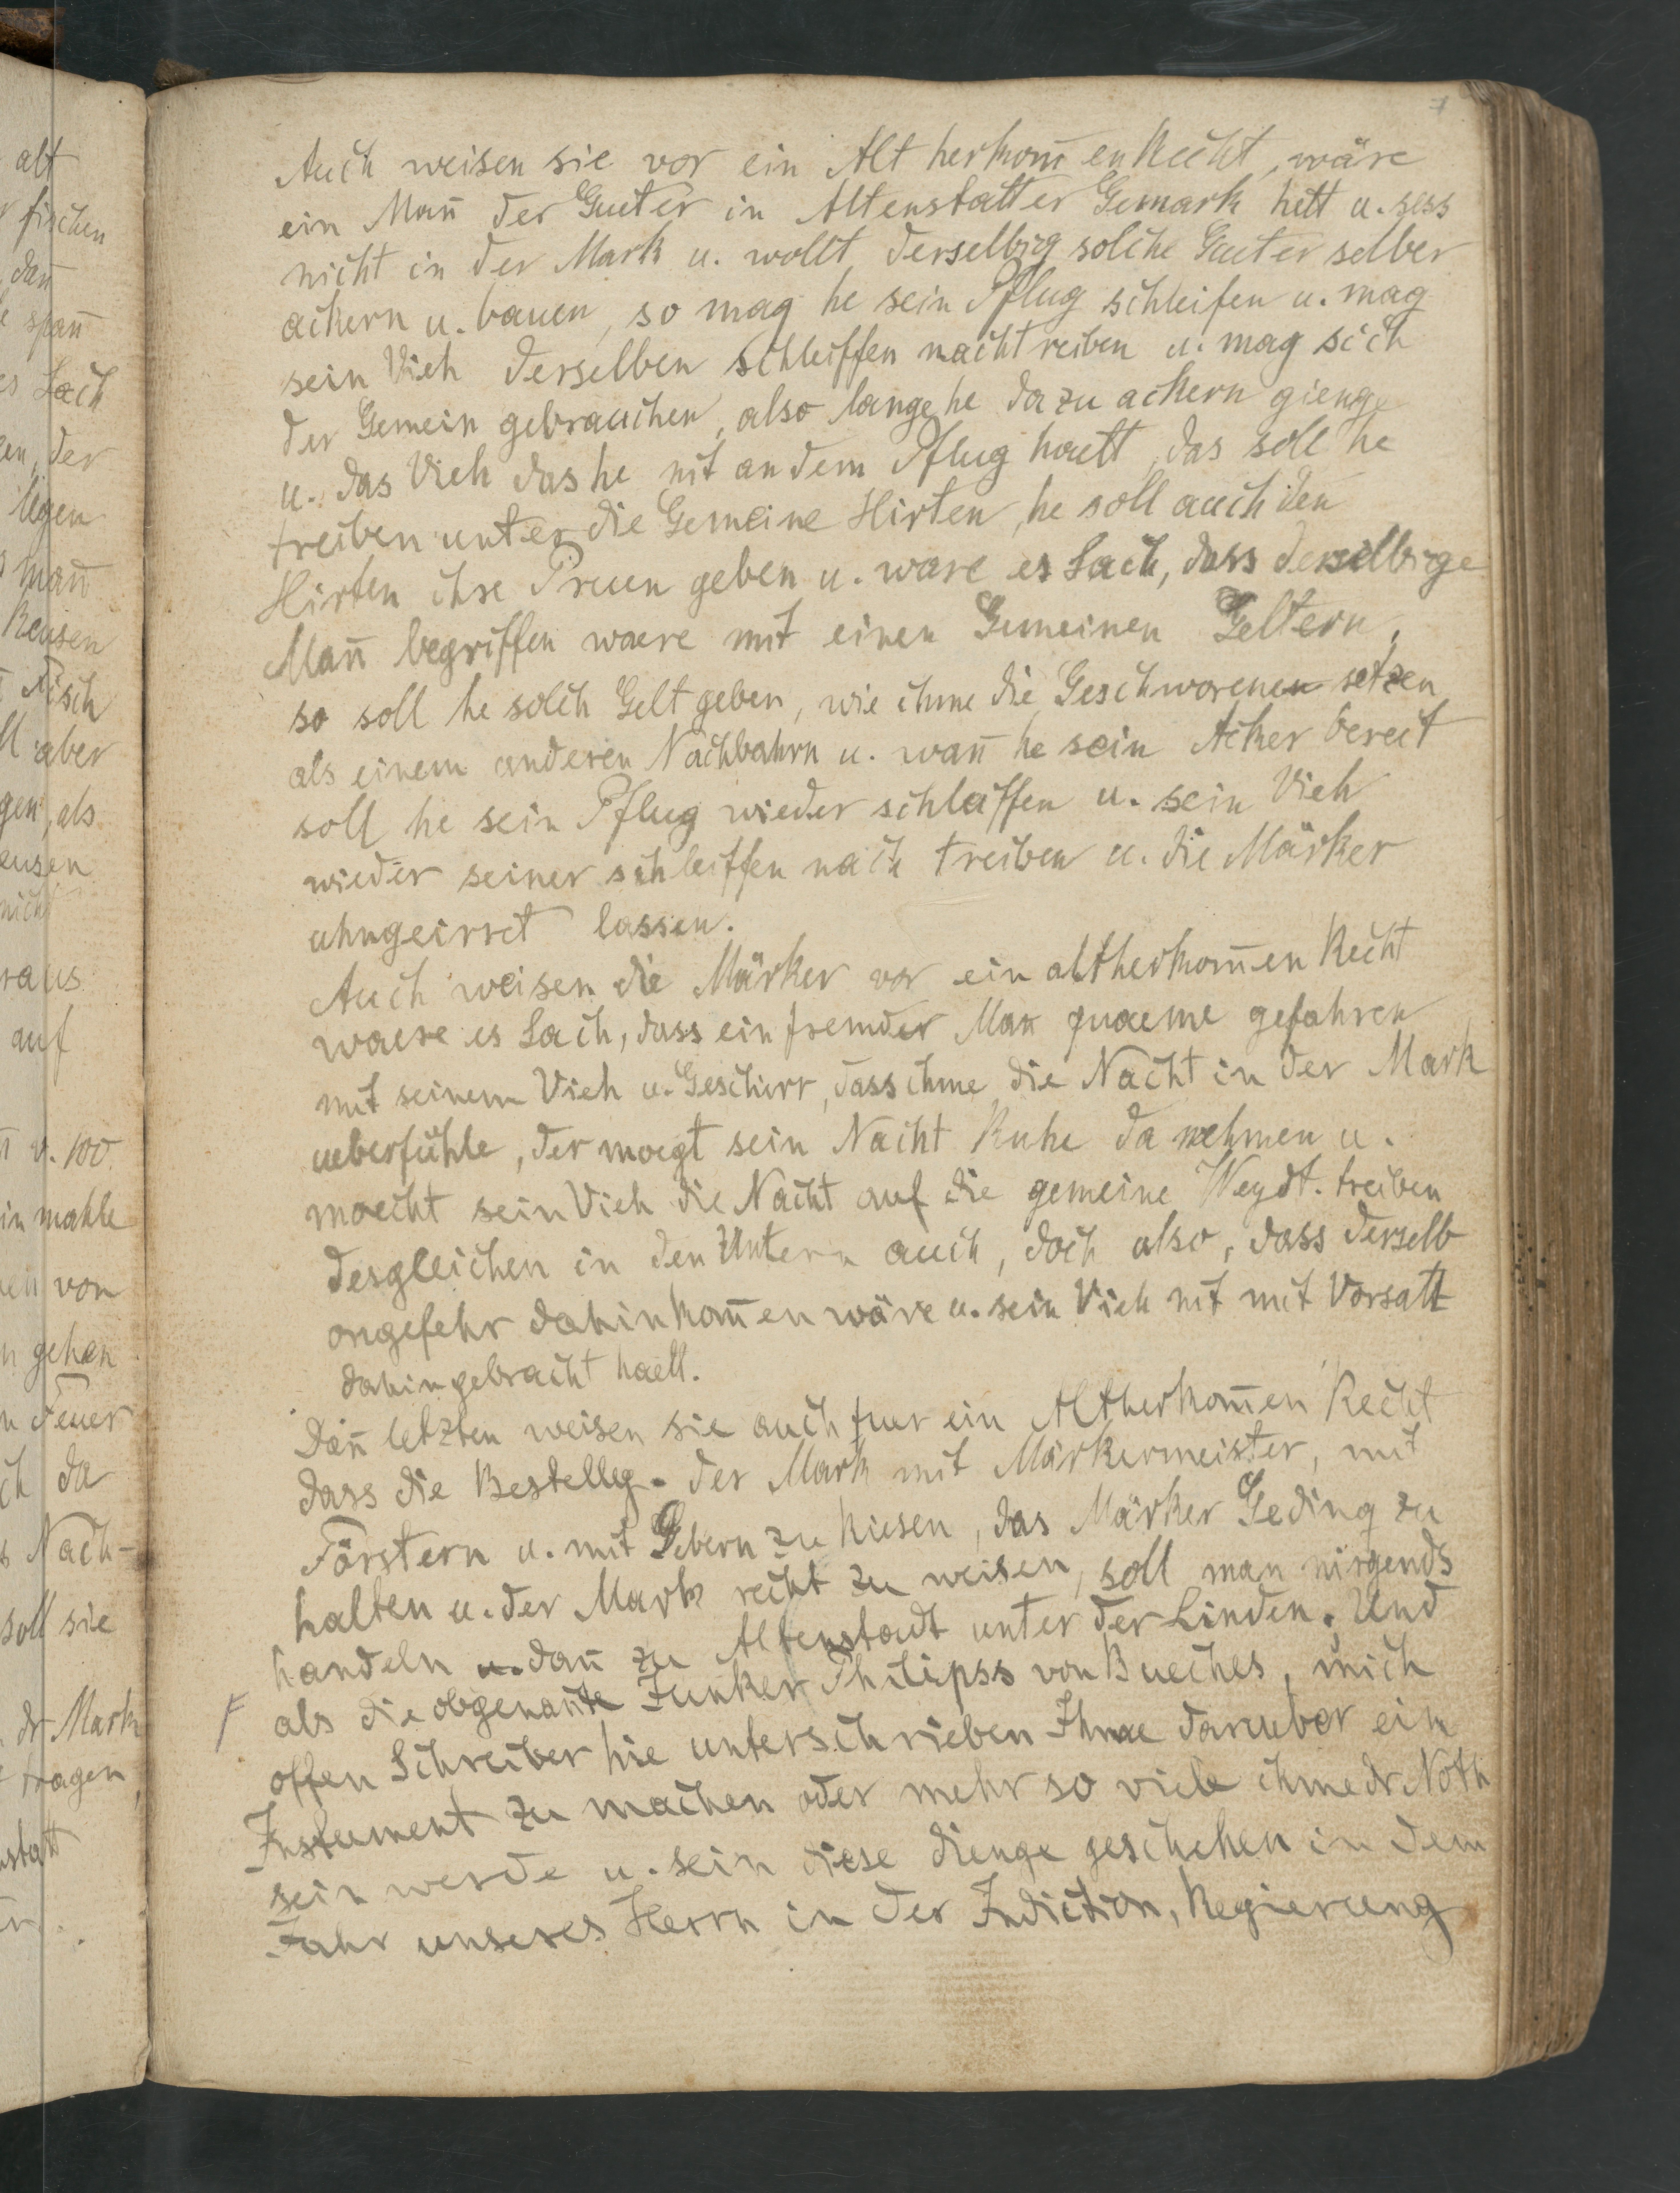 alt
fischen
dañ
spañ
es Sach
en, der
ligen
mañ
Reusen
Fisch
ll aber
gen, als
eusen
nicht
raus
auf
v. 100.
in mahle
en von
n gehen
n Feuer
ch da
s Nach-
soll sie
dr Mark
tragen,
nstatt
7
Auch weisen sie vor ein Alt herkom̄en Recht, wäre
ein Mañ der Gueter in Altenstatter Gemark hett u. sess
nicht in der Mark u. wollt derselbig solche Gueter selber
ackern u. bauen, so mag he sein Pflug schleifen u. mag
sein Vieh derselben schleiffen nacht reiben u. mag sich
der Gemein gebrauchen, also lange he dazu ackern gienge
u. das Vieh das he nit an dem Pflug haett, das soll he
treiben unter die Gemeine Hirten, he soll auch den
Hirten ihre Pruen geben u. ware es Sach, dass derselbige
Mañ begriffen waere mit einen Gemeinen Geltern,
so soll he solch Gelt geben, wie ihme die Geschworenen setzen
als einem anderen Nachbahrn u. wañ he sein Acker bereit
soll he sein Pflug wieder schlaffen u. sein Vieh
wieder seiner schleiffen nach treiben u. die Märker
uhngeirret lassen.
Auch weisen die Märker vor ein altherkom̄en Recht
waere es Sach, dass ein fremder Man quaeme gefahren
mit seinem Vieh u. Geschirr, dass ihme die Nacht in der Mark
ueberfühle, der moegt sein Nacht Ruhe da nehmen u.
moecht sein Vieh die Nacht auf die gemeine Weydt. treiben
desgleichen in den Untern auch, doch also, dass derselb
ongefehr dahinkom̄en wäre u. sein Vieh nit mit Vorsatt
dahin gebracht haett.
Dañ letzten weisen sie auch fuer ein Altherkom̄en Recht
dass die Bestellg. der Mark mit Märkermeister, mit
Förstern u. mit Gebern zu kiesen, das Märker Geding zu
halten u. der Mark recht zu weisen, soll man nirgends
handeln u. dañ zu Altenstadt unter der Linden. Und
F als die obgenañte Junker Philipss von Bueches, mich
offen Schreiber hie unterschrieben Ihme darueber ein
Instument zu machen oder mehr so viele ihme dr Noth
sein werde u. sein diese dienge geschehen in dem
Jahr unseres Herrn in der Indiction, Regierung